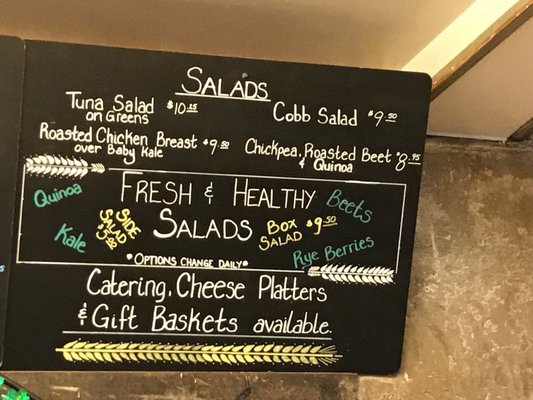 SALADS
Tuna Salad on Greens $10.25
Cobb Salad $9.50
Roasted Chicken Breast $9.50
over Baby Kale
Chickpea, Roasted Beet $8.95
& Quinoa
FRESH & HEALTHY
SALADS
Quinoa
Kale
SIDE SALAD
BOX SALAD $9.50
Beets
Rye Berries
*OPTIONS CHANGE DAILY*
Catering, Cheese Platters
& Gift Baskets available.